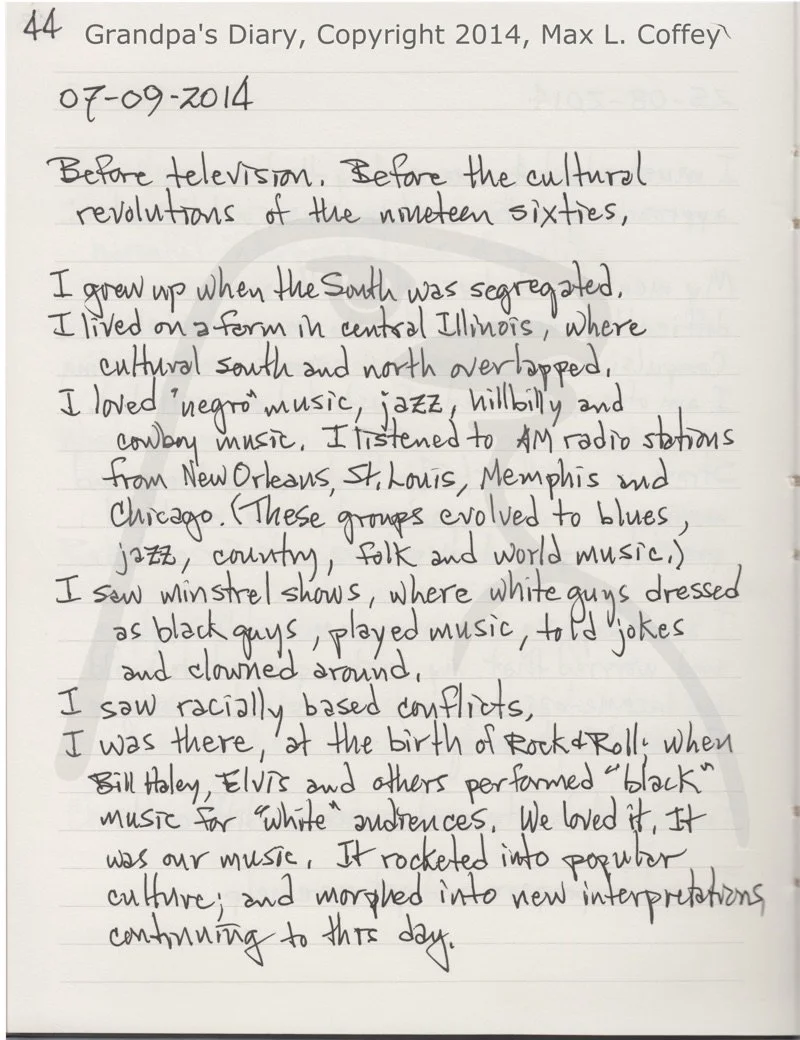 44 Grandpa's Diary, Copyright 2014, Max L. Coffey
07-09-2014
Before television. Before the cultural
revolutions of the nineteen sixties,
I grew up when the South was segregated.
I lived on a farm in central Illinois, where
cultural south and north overlapped.
I loved "negro" music, jazz, hillbilly and
cowboy music. I listened to AM radio stations
from New Orleans, St. Louis, Memphis and
Chicago. (These groups evolved to blues,
jazz, country, folk and world music.)
I saw minstrel shows, where white guys dressed
as black guys, played music, told jokes
and clowned around.
I saw racially based conflicts,
I was there, at the birth of Rock & Roll; when
Bill Haley, Elvis and others performed "black"
music for "white" audiences. We loved it. It
was our music. It rocketed into popular
culture; and morphed into new interpretations,
continuing to this day.